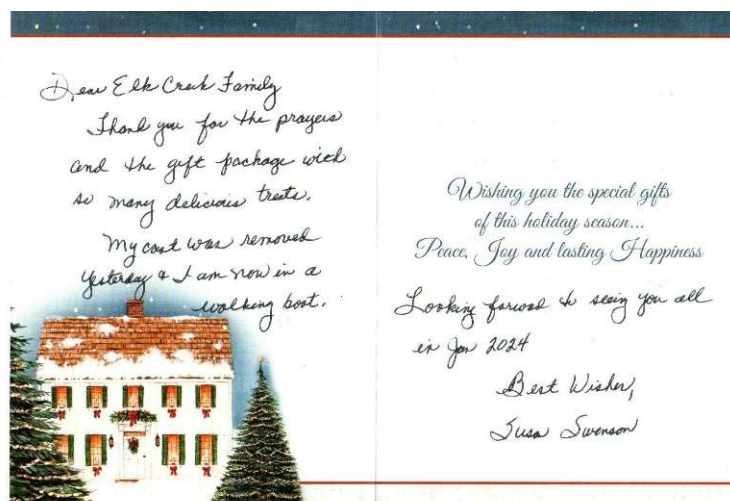 Dear Elk Creek Family
Thank you for the prayers
and the gift package with
so many delicious treats.
My cast was removed
yesterday & I am now in a
walking boot.
Wishing you the special gifts
of this holiday season...
Peace, Joy and lasting Happiness
Looking forward to seeing you all
in Jan 2024
Best Wishes,
Susa Swenson